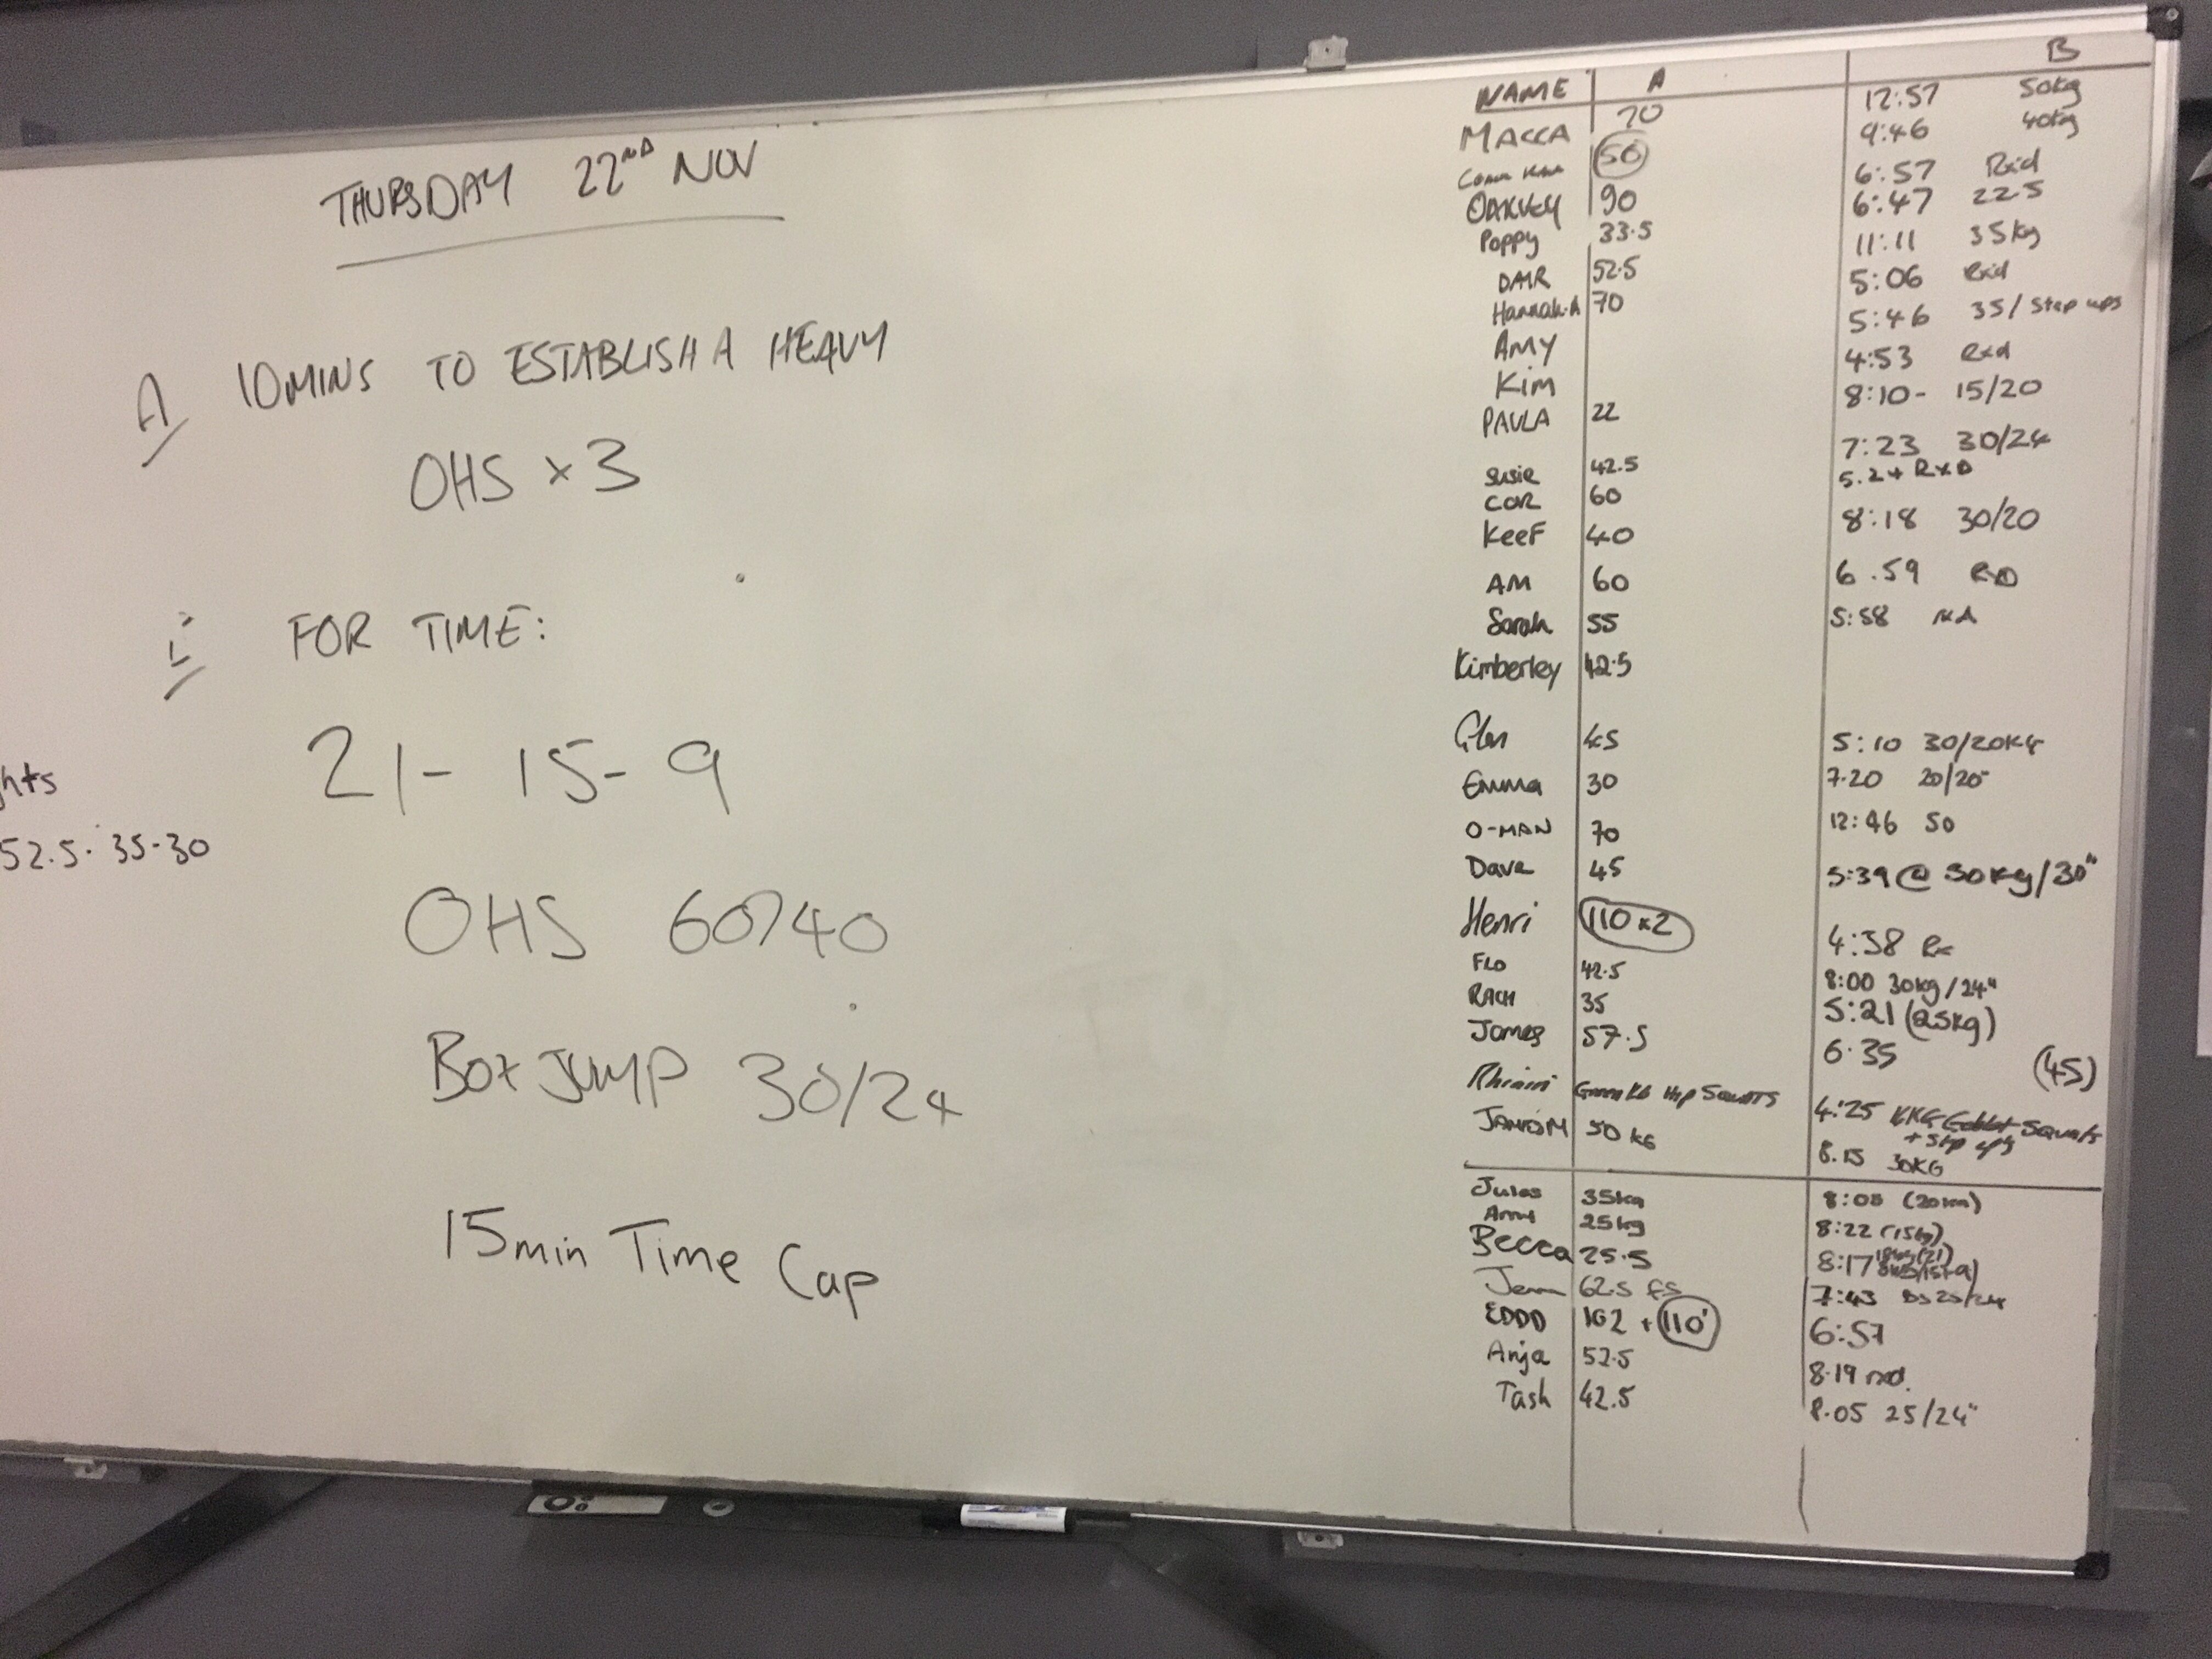 THURSDAY 22ND NOV
A 10MINS TO ESTABLISH A HEAVY
OHS x 3
FOR TIME:
21- 15- 9
OHS 60/40
BOX JUMP 30/24
15min Time Cap
hts
52.5. 35-30
NAME A B
MACCA 70 12:57 50kg
50 9:46 40kg
OAKVEY 90 6:57 Rxd
Poppy 33.5 6:47 22.5
DAR 52.5 11:11 35kg
Hannah.A 70 5:06 Rxd
AMY 5:46 35/ Step ups
Kim 4:53 Rxd
PAULA 22 8:10- 15/20
Susie 42.5 7:23 30/24
COR 60 5.24 RxD
KeeF 40 8:18 30/20
AM 60 6.59 RxD
Sarah 55 5:58
Kimberley 42.5
Glen 45 5:10 30/20KG
Emma 30 7.20 20/20"
O-MAN 70 12:46 50
Dave 45 5:39 @ 30kg/30"
Henri 110 x2 4:38 Rx
FLO 42.5 8:00 30kg/24"
RACH 35 5:21 (25kg)
James 57.5 6.35 (45)
HIP SQUATS 4:25 Goblet Squats
+ step ups
50 KG 8.15 30KG
Jules 35kg
25kg 8:22 (15kg)
Becca 25.5 8:17
Jenn 62.5 FS 7:43
EDDD 102 + 110' 6:57
Anja 52.5 8.19 rxd.
Tash 42.5 8.05 25/24"